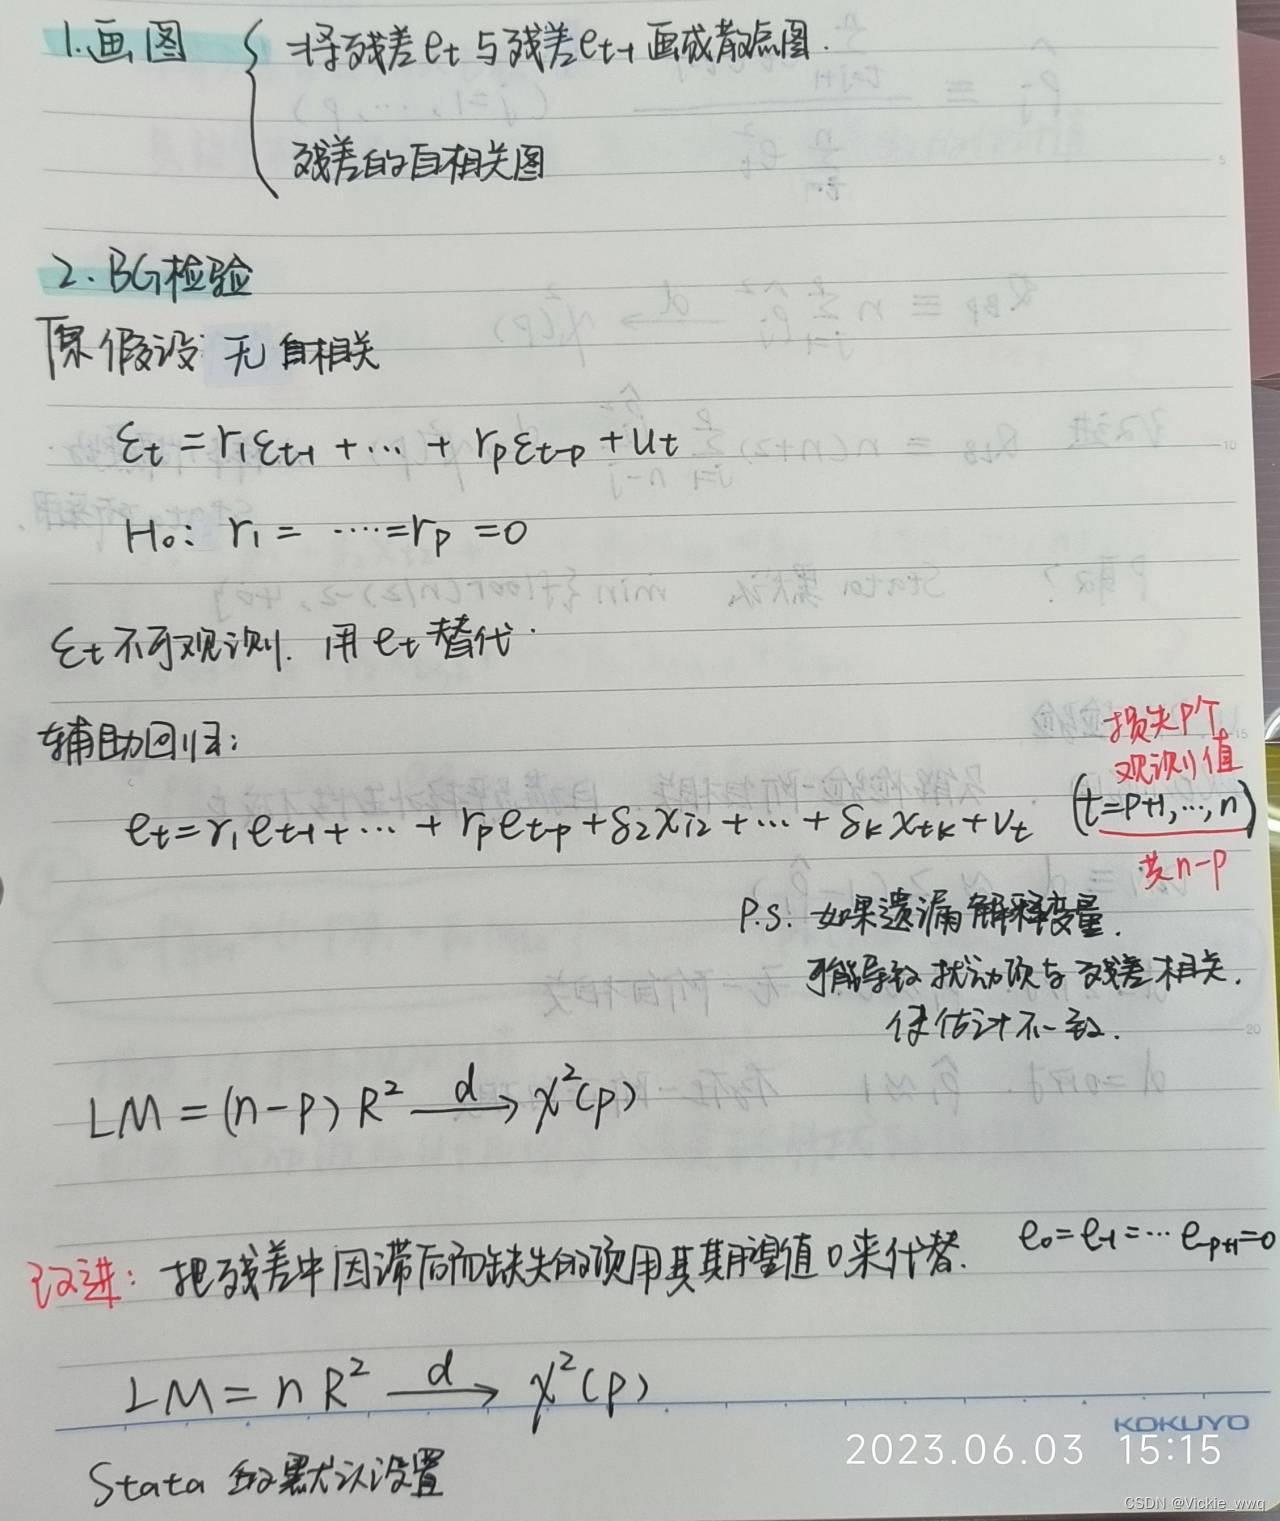 1.画图
将残差et与残差et-1画成散点图.
残差的自相关图
2.BG检验
原假设 无自相关
εt = r1εt-1 + … + rpεt-p + ut
H0: r1 = ……= rp = 0
εt不可观测. 用et替代.
辅助回归:
损失P个
观测值
et = r1et-1 + … + rpet-p + δ2xi2 + … + δkxtk + vt (t=p+1,…,n)
共n-p
P.S. 如果遗漏解释变量.
可能导致扰动项与残差相关.
使估计不一致.
LM = (n-p) R² —d→ χ²(p)
改进: 把残差中因滞后而缺失的项用其期望值0来代替. e0=e-1=…e-p+1=0
LM = n R² —d→ χ²(p)
KOKUYO
2023.06.03 15:15
Stata 的默认设置
CSDN @Vickie_wwq